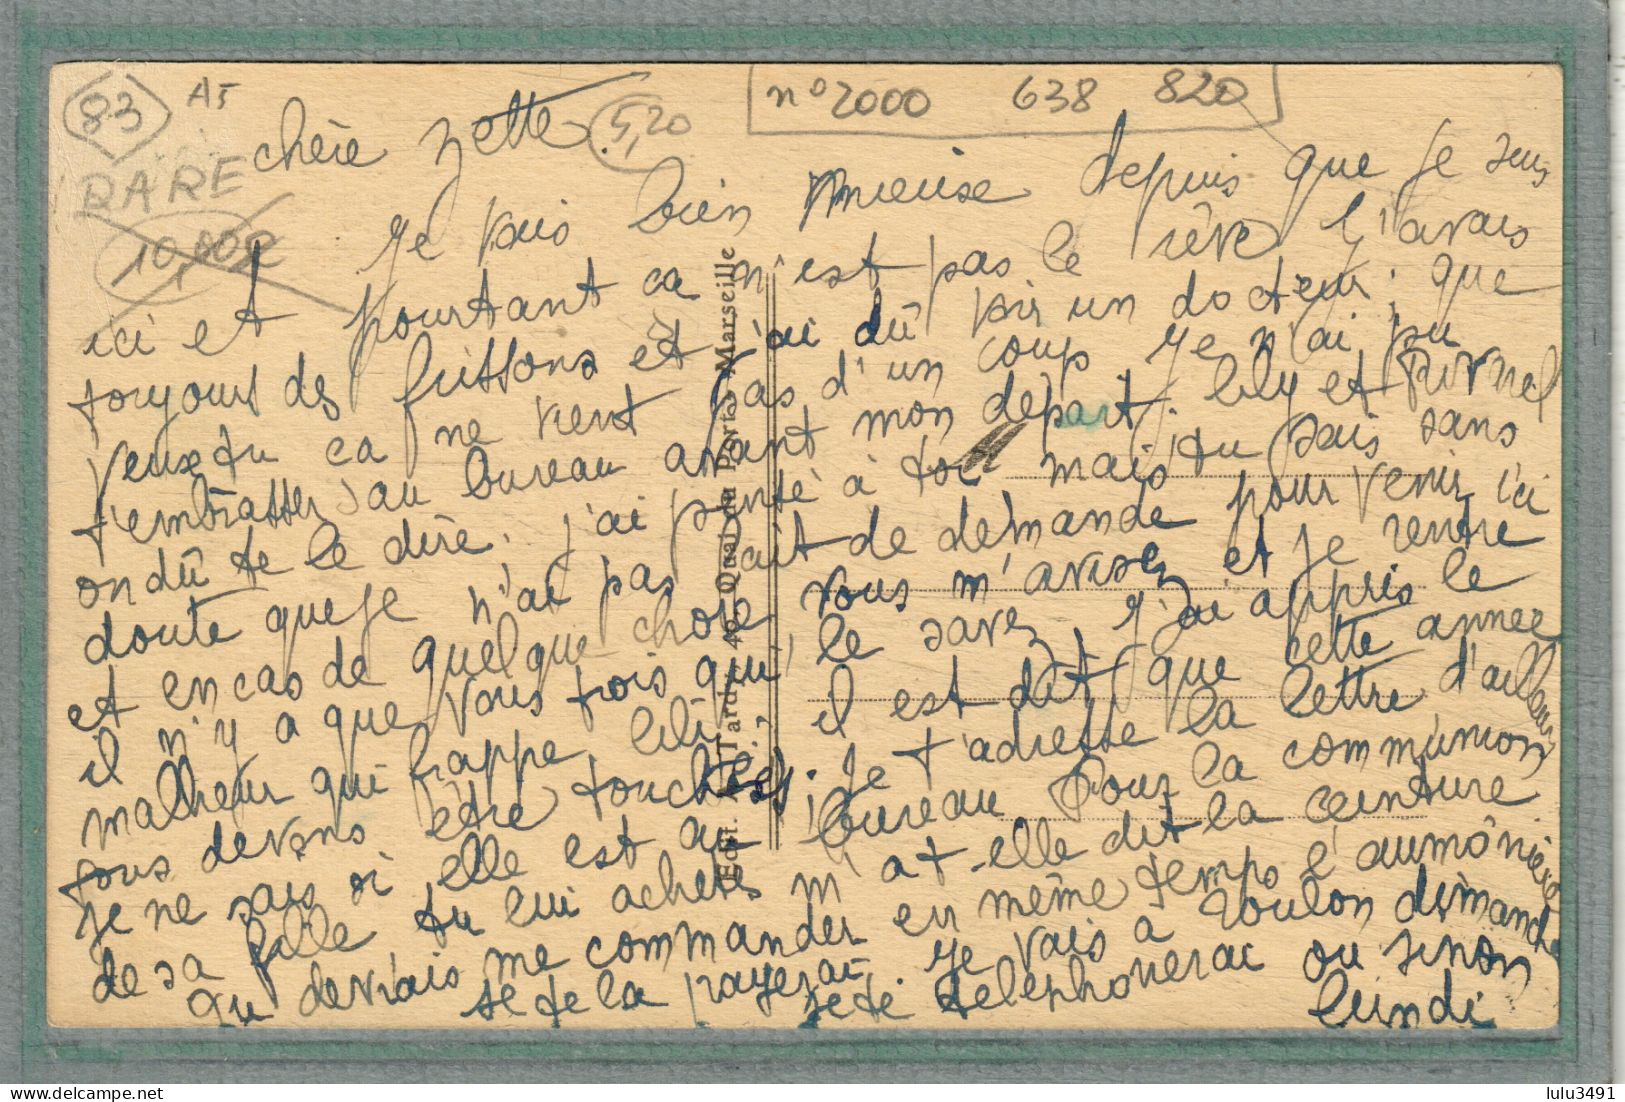 83 A5
n° 2000 638 820
RARE
5,20
chère zette.
Je vais bien mieux depuis que je suis
ici et pourtant ca n'est pas le rêve j'avais
toujours des frissons et j'ai dû voir un docteur; que
veux tu ca ne vient pas d'un coup je n'ai pu
t'embrasser au bureau avant mon départ. lily et
on dû te le dire. j'ai pensé à toi mais tu sais sans
doute que je n'ai pas fait de demande pour venir ici
et en cas de quelque chose vous m'avisez et je rentre
il n'y a que vous trois qui le savez, j'ai appris le
malheur qui frappe lili il est dit que cette année
tous devons être touchées. Je t'adresse la lettre d'ailleurs
je ne sais si elle est au bureau Pour la communion
de sa fille tu lui achètes m'a t-elle dit la ceinture
qu devrais me commander en même temps l'aumônière
je te la payerai. Je vais à Toulon dimanche
je te telephonerai ou sinon
lundi
Edit. A. Tardy, 42, Quai du Port, Marseille
lulu3491